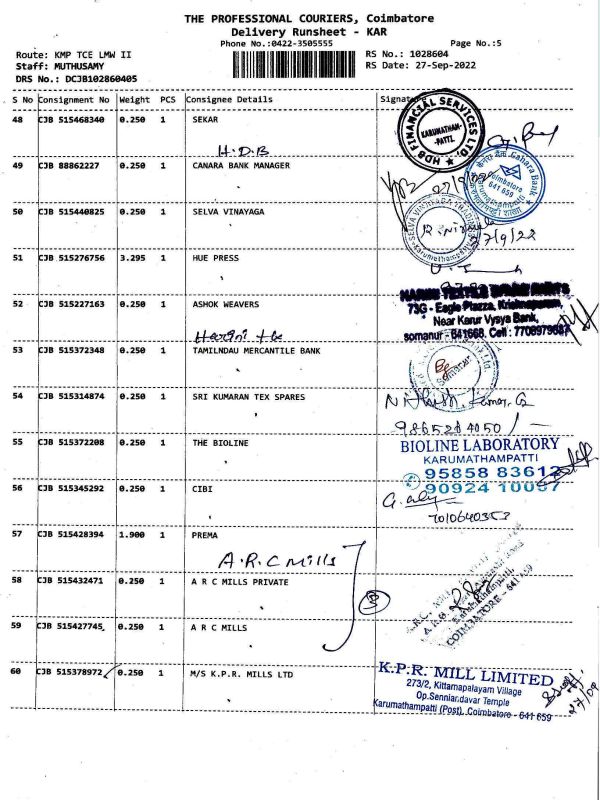 THE PROFESSIONAL COURIERS, Coimbatore
Delivery Runsheet - KAR
Phone No.:0422-3505555
Page No.:5
Route: KMP TCE LMW II
RS No.: 1028604
Staff: MUTHUSAMY
RS Date: 27-Sep-2022
DRS No.: DCJB102860405
S No Consignment No Weight PCS Consignee Details Signature
48 CJB 515468340 0.250 1 SEKAR
H.D.B
HDB FINANCIAL SERVICES LTD.
KARUMATHAM-
PATTI.
49 CJB 88862227 0.250 1 CANARA BANK MANAGER
Canara Bank
Coimbatore
641 659
50 CJB 515440825 0.250 1 SELVA VINAYAGA
SELVA VINAYAGA TRADING
Karumathampatti
27/9/22
51 CJB 515276756 3.295 1 HUE PRESS
52 CJB 515227163 0.250 1 ASHOK WEAVERS
73G - Eagle Plazza, Krishnapuram,
Near Karur Vysya Bank,
somanur - 641668. Cell : 7708979687
53 CJB 515372348 0.250 1 TAMILNDAU MERCANTILE BANK
Somanur
54 CJB 515314874 0.250 1 SRI KUMARAN TEX SPARES
Nithish Kumar. G
55 CJB 515372208 0.250 1 THE BIOLINE
BIOLINE LABORATORY
KARUMATHAMPATTI
95858 83612
90924 10067
56 CJB 515345292 0.250 1 CIBI
7010640353
57 CJB 515428394 1.900 1 PREMA
A.R.C Mills
58 CJB 515432471 0.250 1 A R C MILLS PRIVATE
3
COIMBATORE - 641 659
59 CJB 515427745 0.250 1 A R C MILLS
60 CJB 515378972 0.250 1 M/S K.P.R. MILLS LTD
K.P.R. MILL LIMITED
273/2, Kittampalayam Village
Op.Senniandavar Temple
Karumathampatti (Post), Coimbatore - 641 659
27/09